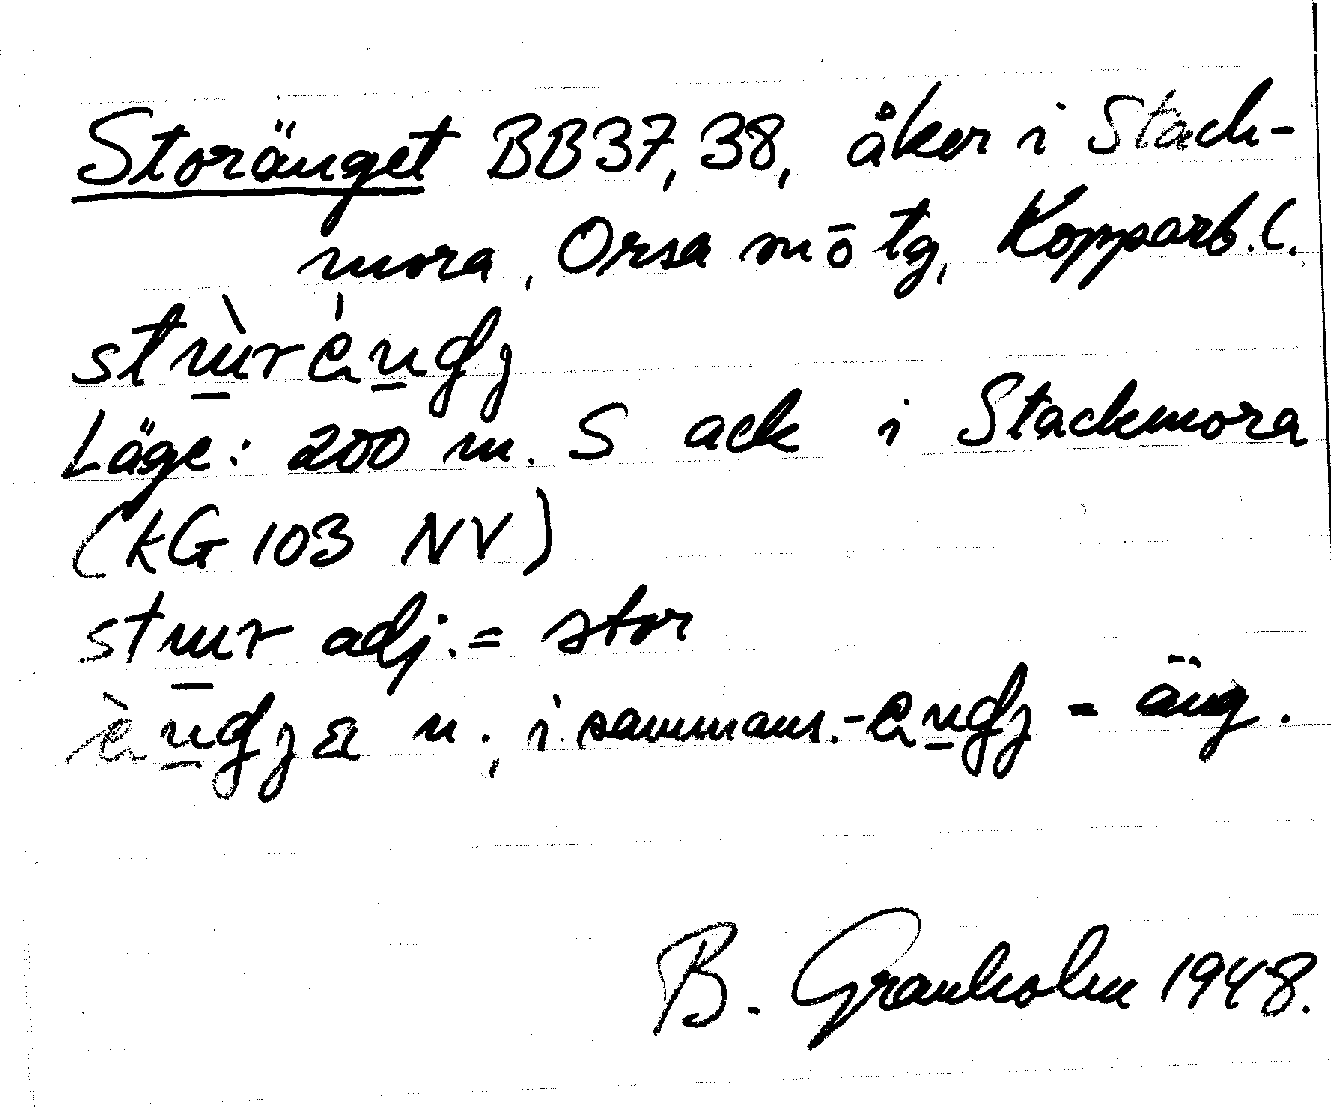 Storänget BB37,38, åker i Stack-
mora, Orsa m ō tg, Kopparb. l.
Läge: 200 m. S ack i Stackmora
(kG 103 NV)
adj. = stor
n., i sammans. = äng.
B. Granholm 1948.